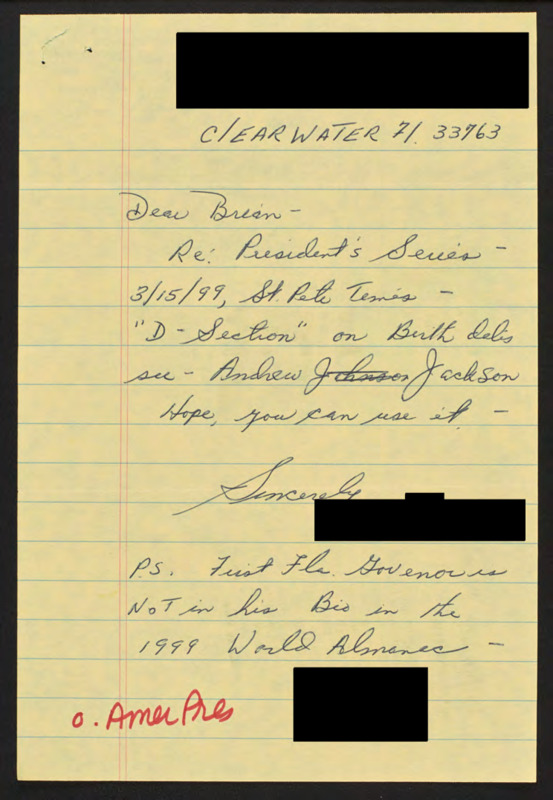 CLEARWATER Fl. 33763
Dear Brian -
Re: President's Series -
3/15/99, St. Pete Times -
"D - Section" on Birth dates
see - Andrew Johnson Jackson
Hope, you can use it -
Sincerely
P.S. First Fla. Govenor is
NOT in his Bio in the
1999 World Almanac -
o. Amer Pres